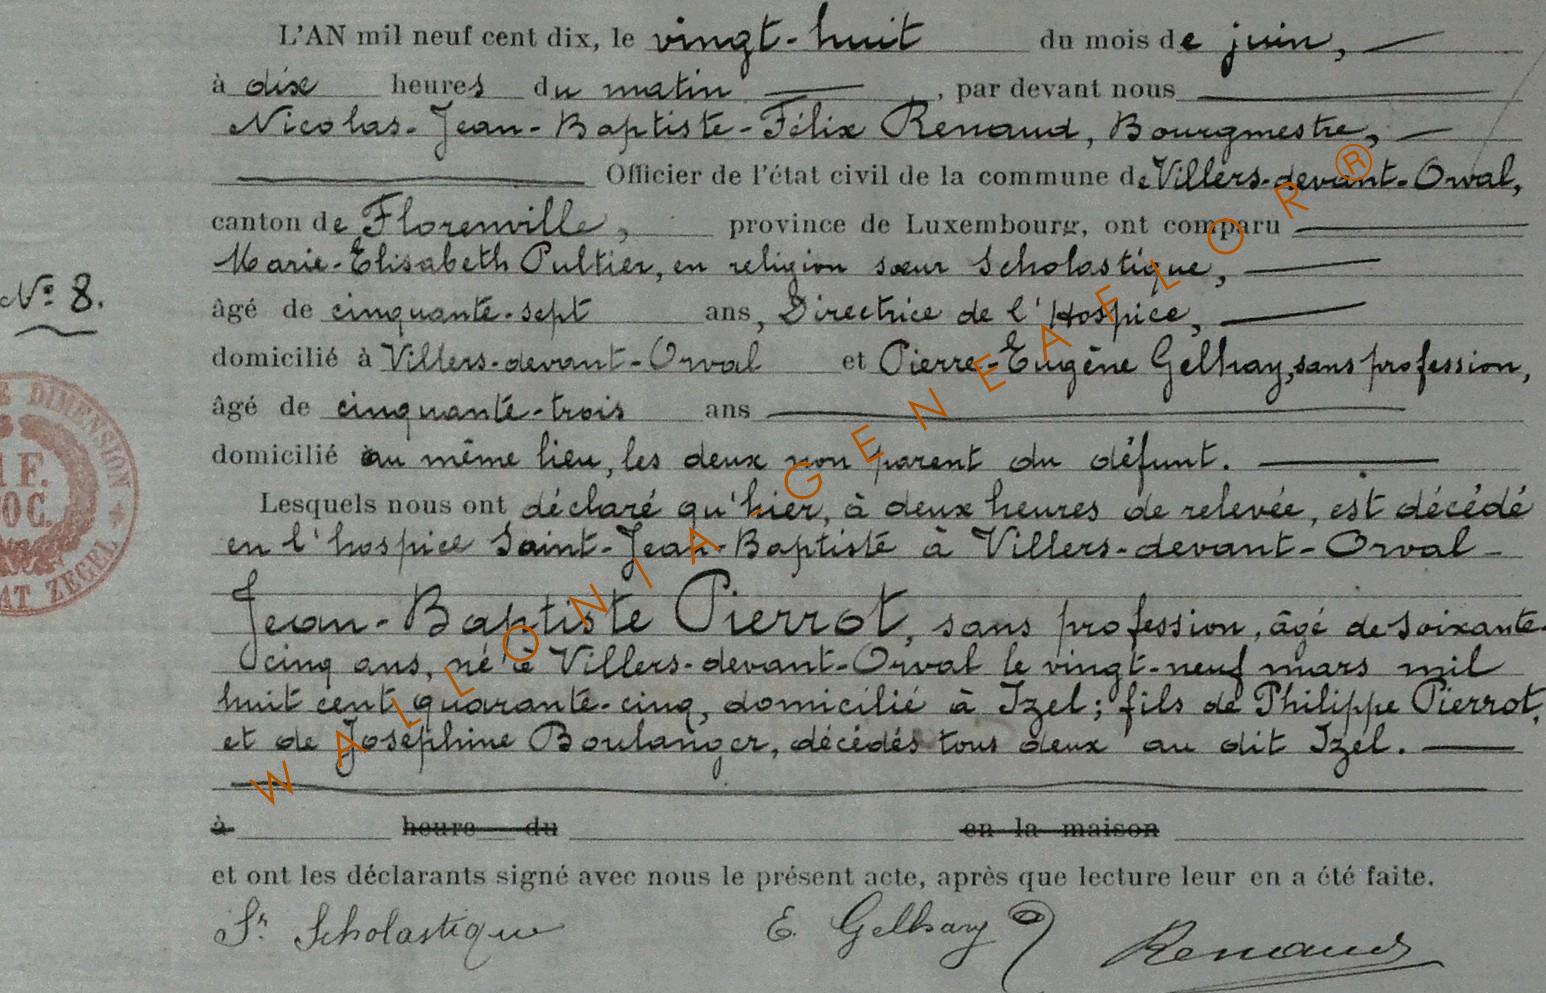 L'AN mil neuf cent dix, le vingt-huit du mois de juin,
à dix heures du matin, par devant nous
Nicolas-Jean-Baptiste-Félix Renaud, Bourgmestre,
Officier de l'état civil de la commune de Villers-devant-Orval,
canton de Florenville, province de Luxembourg, ont comparu
Marie-Elisabeth Pultier, en religion sœur Scholastique,
N° 8.
âgé de cinquante-sept ans, Directrice de l'Hospice,
domicilié à Villers-devant-Orval et Pierre-Eugène Gelhay, sans profession,
âgé de cinquante-trois ans
domicilié au même lieu, les deux non parent du défunt.
Lesquels nous ont déclaré qu'hier, à deux heures de relevée, est décédé
en l'hospice Saint-Jean-Baptiste à Villers-devant-Orval
Jean-Baptiste Pierrot, sans profession, âgé de soixante-
cinq ans, né à Villers-devant-Orval le vingt-neuf mars mil
huit cent quarante-cinq, domicilié à Izel; fils de Philippe Pierrot,
et de Joséphine Boulanger, décédés tous deux au dit Izel.
à heure du en la maison
et ont les déclarants signé avec nous le présent acte, après que lecture leur en a été faite.
Sr Scholastique E. Gelhay Renaud
DIMENSION
1 F.
ZEGEL
WALLONIA-GENEAFLOR®